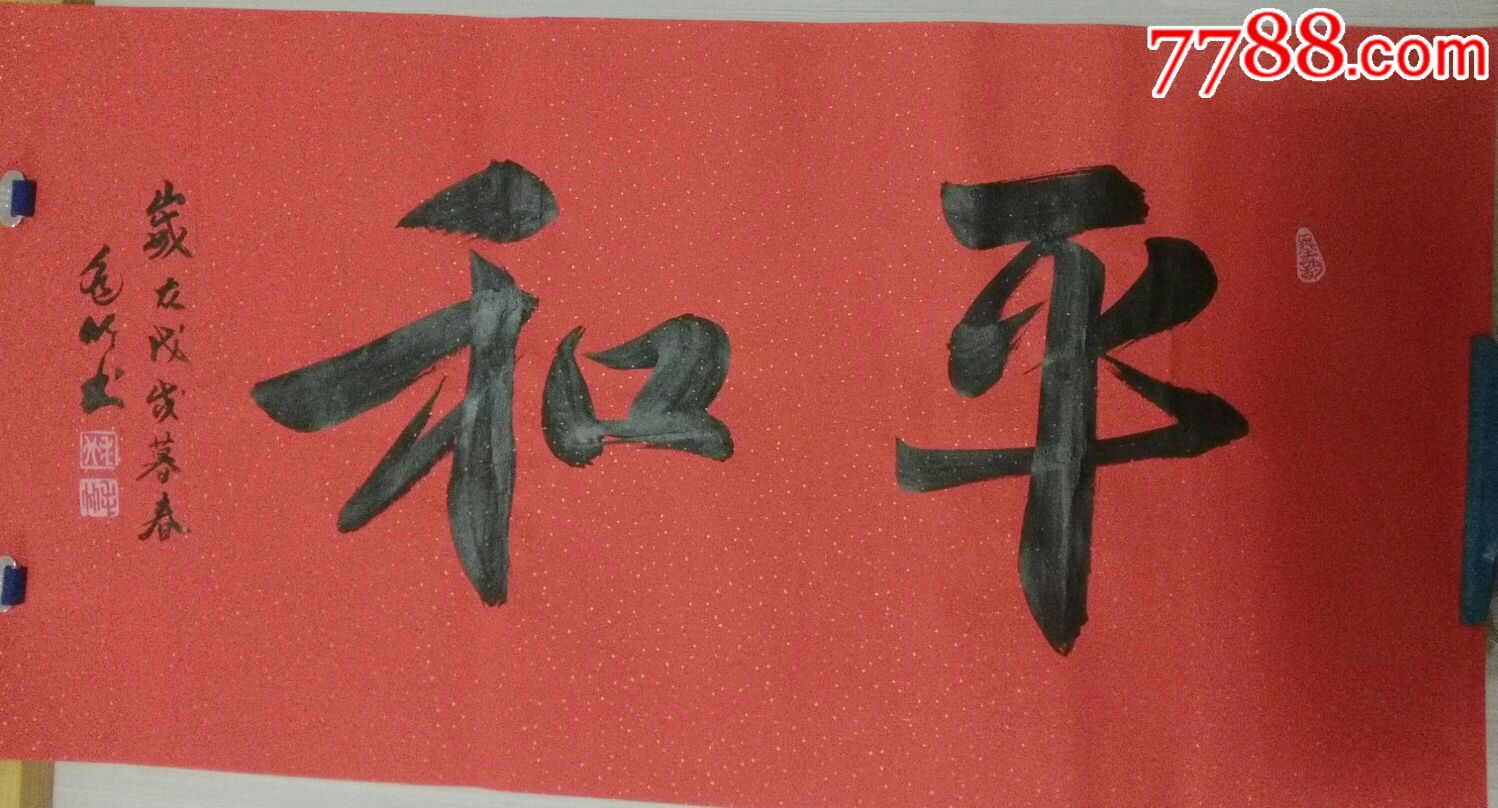 7788.com
平和
歲在戊戌暮春
竹书